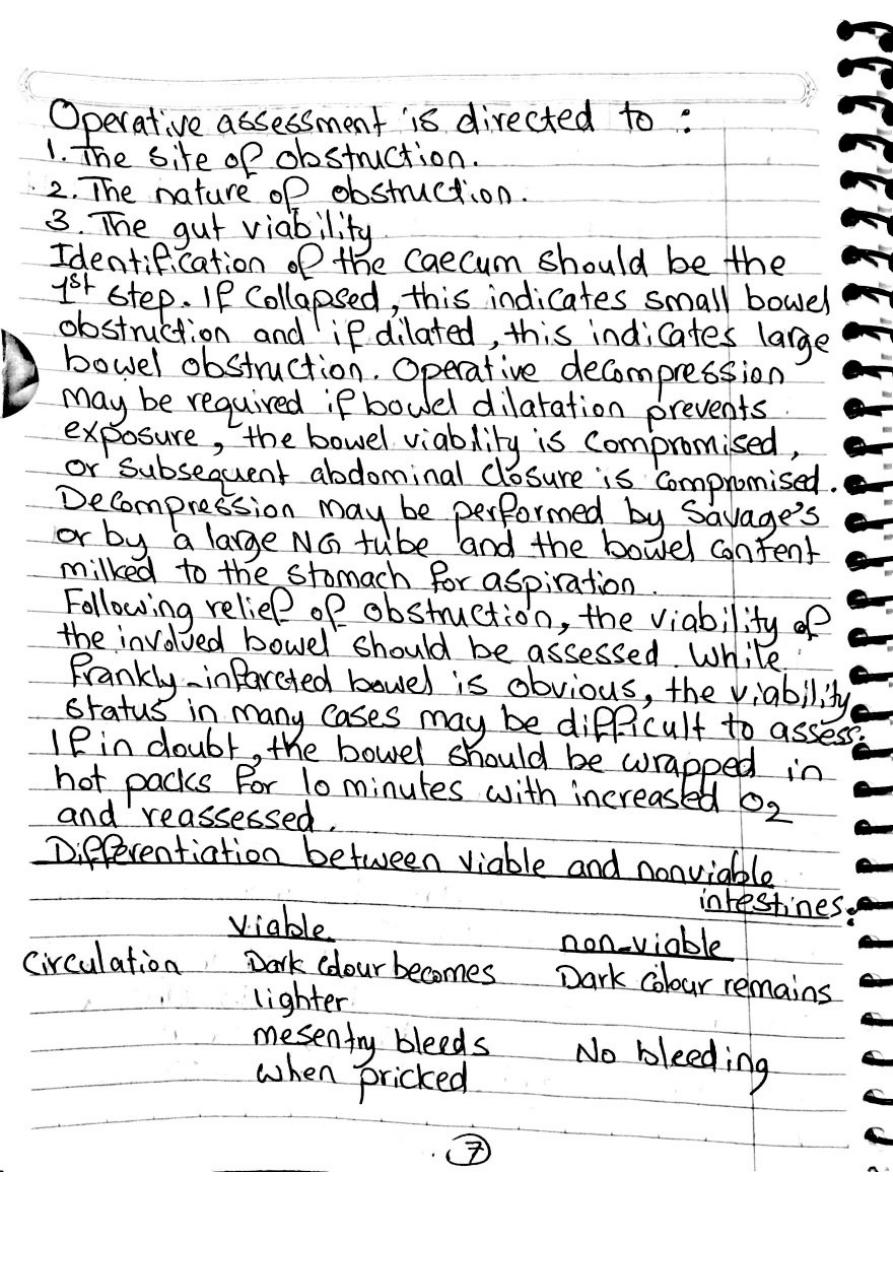 Operative assessment is directed to :
1. The site of obstruction.
2. The nature of obstruction.
3. The gut viability
Identification of the caecum should be the
1st step. If collapsed, this indicates small bowel
obstruction and if dilated, this indicates large
bowel obstruction. Operative decompression
may be required if bowel dilatation prevents
exposure, the bowel viability is compromised,
or subsequent abdominal closure is compromised.
Decompression may be performed by Savage's
or by a large NG tube and the bowel content
milked to the stomach for aspiration.
Following relief of obstruction, the viability of
the involved bowel should be assessed. While
frankly-infarcted bowel is obvious, the viability
status in many cases may be difficult to assess.
If in doubt, the bowel should be wrapped in
hot packs for 10 minutes with increased O2
and reassessed.
Differentiation between viable and nonviable
intestines:
viable non-viable
Circulation Dark colour becomes Dark colour remains
lighter
mesentry bleeds No bleeding
when pricked
7